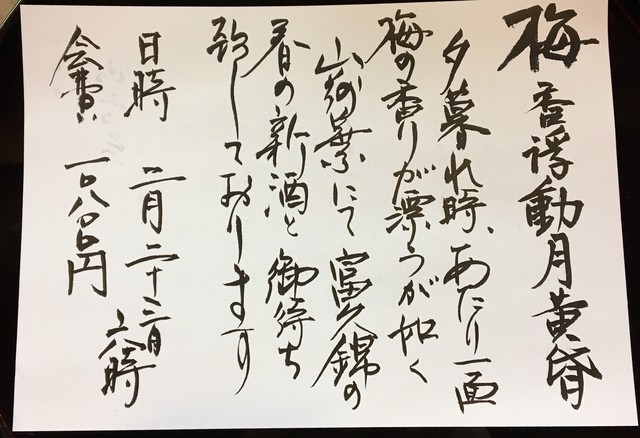 梅香浮動月黄昏
夕暮れ時、あたり一面
梅の香りが漂うが如く
山荷葉にて 富久錦の
春の新酒と 御待ち
致しております
日時 二月二十三日 六時
会費 一〇八〇〇円